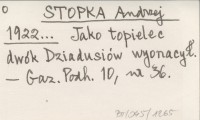 O STOPKA Andrzej
1922... Jako topielec
dwók Dziadusiów wyonacył.
— Gaz. Podh. 10, nr 36.